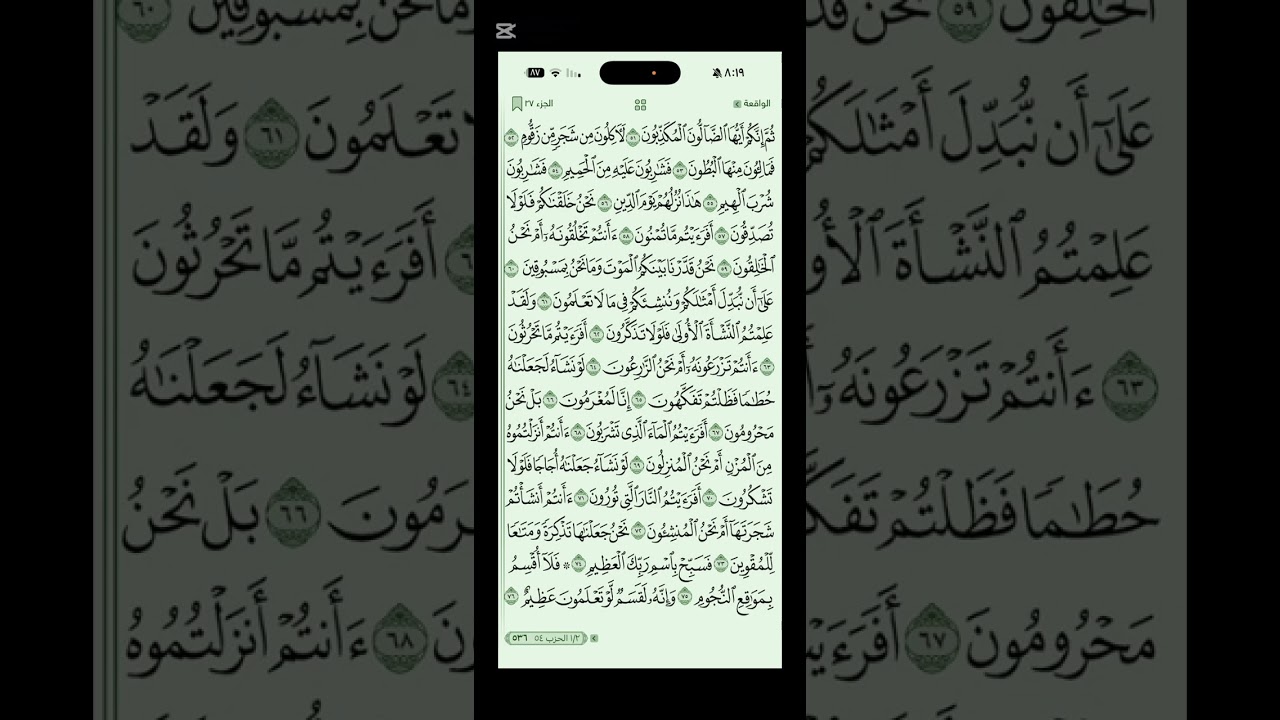 ٨:١٩ ٨٧
الواقعة الجزء ٢٧
ثُمَّ إِنَّكُمْ أَيُّهَا ٱلضَّآلُّونَ ٱلْمُكَذِّبُونَ ٥١ لَأٓكِلُونَ مِن شَجَرٍ مِّن زَقُّومٍ ٥٢
فَمَالِـُٔونَ مِنْهَا ٱلْبُطُونَ ٥٣ فَشَٰرِبُونَ عَلَيْهِ مِنَ ٱلْحَمِيمِ ٥٤ فَشَٰرِبُونَ
شُرْبَ ٱلْهِيمِ ٥٥ هَٰذَا نُزُلُهُمْ يَوْمَ ٱلدِّينِ ٥٦ نَحْنُ خَلَقْنَٰكُمْ فَلَوْلَا
تُصَدِّقُونَ ٥٧ أَفَرَءَيْتُم مَّا تُمْنُونَ ٥٨ ءَأَنتُمْ تَخْلُقُونَهُۥٓ أَمْ نَحْنُ
ٱلْخَٰلِقُونَ ٥٩ نَحْنُ قَدَّرْنَا بَيْنَكُمُ ٱلْمَوْتَ وَمَا نَحْنُ بِمَسْبُوقِينَ ٦٠
عَلَىٰٓ أَن نُّبَدِّلَ أَمْثَٰلَكُمْ وَنُنشِئَكُمْ فِى مَا لَا تَعْلَمُونَ ٦١ وَلَقَدْ
عَلِمْتُمُ ٱلنَّشْأَةَ ٱلْأُولَىٰ فَلَوْلَا تَذَكَّرُونَ ٦٢ أَفَرَءَيْتُم مَّا تَحْرُثُونَ
٦٣ ءَأَنتُمْ تَزْرَعُونَهُۥٓ أَمْ نَحْنُ ٱلزَّٰرِعُونَ ٦٤ لَوْ نَشَآءُ لَجَعَلْنَٰهُ
حُطَٰمًا فَظَلْتُمْ تَفَكَّهُونَ ٦٥ إِنَّا لَمُغْرَمُونَ ٦٦ بَلْ نَحْنُ
مَحْرُومُونَ ٦٧ أَفَرَءَيْتُمُ ٱلْمَآءَ ٱلَّذِى تَشْرَبُونَ ٦٨ ءَأَنتُمْ أَنزَلْتُمُوهُ
مِنَ ٱلْمُزْنِ أَمْ نَحْنُ ٱلْمُنزِلُونَ ٦٩ لَوْ نَشَآءُ جَعَلْنَٰهُ أُجَاجًا فَلَوْلَا
تَشْكُرُونَ ٧٠ أَفَرَءَيْتُمُ ٱلنَّارَ ٱلَّتِى تُورُونَ ٧١ ءَأَنتُمْ أَنشَأْتُمْ
شَجَرَتَهَآ أَمْ نَحْنُ ٱلْمُنشِـُٔونَ ٧٢ نَحْنُ جَعَلْنَٰهَا تَذْكِرَةً وَمَتَٰعًا
لِّلْمُقْوِينَ ٧٣ فَسَبِّحْ بِٱسْمِ رَبِّكَ ٱلْعَظِيمِ ٧٤ ۞ فَلَآ أُقْسِمُ
بِمَوَٰقِعِ ٱلنُّجُومِ ٧٥ وَإِنَّهُۥ لَقَسَمٌ لَّوْ تَعْلَمُونَ عَظِيمٌ ٧٦
١/٢ الحزب ٥٤ ٥٣٦